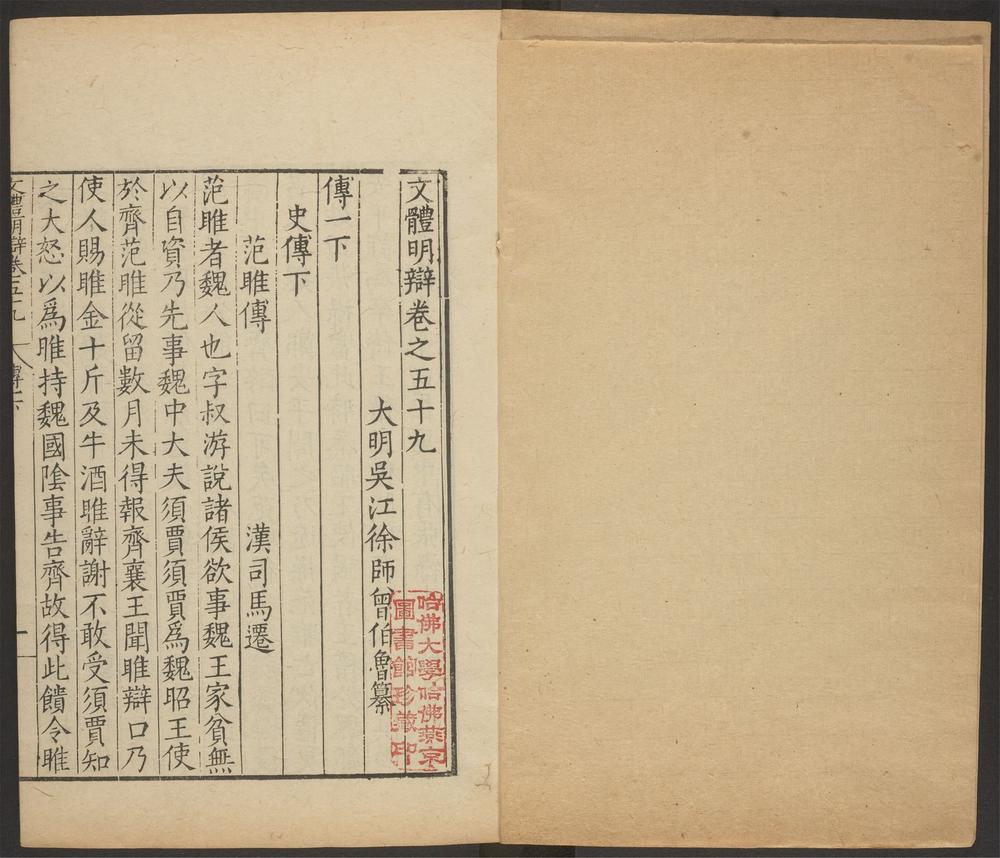 文體明辯卷之五十九
大明吳江徐師曾伯魯纂
傳一下
史傳下
范雎傳　漢司馬遷
范雎者魏人也字叔游說諸侯欲事魏王家貧無
以自資乃先事魏中大夫須賈須賈爲魏昭王使
於齊范雎從留數月未得報齊襄王聞雎辯口乃
使人賜雎金十斤及牛酒雎辭謝不敢受須賈知
之大怒以爲雎持魏國隂事告齊故得此饋令雎
文體明辯卷五十九　傳下　一
哈佛大學哈佛燕京
圖書館珍藏印